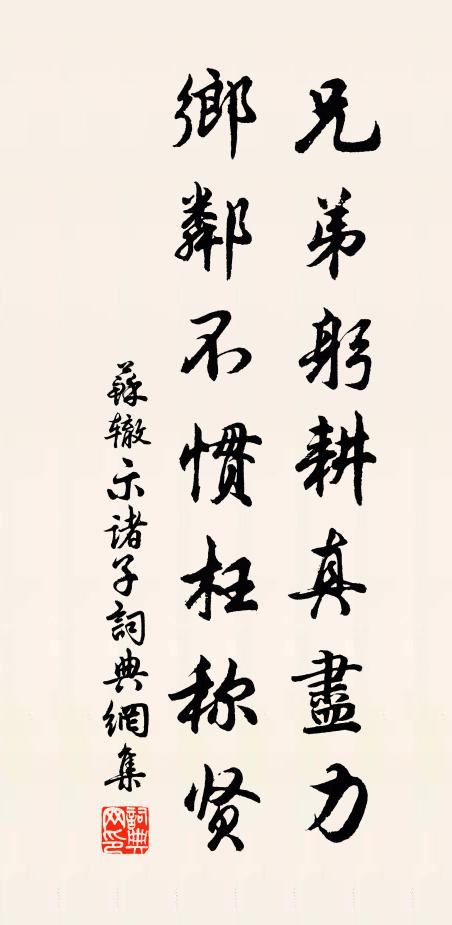 兄弟躬耕真盡力
鄉鄰不慣枉称贤
蘇辙示诸子詞典網集
詞典网印